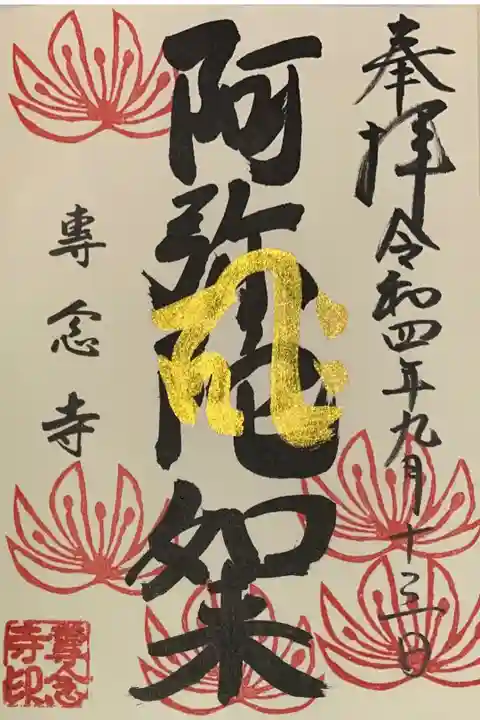 奉拝 令和四年九月十三日
阿弥陀如来
專念寺
專念
寺印